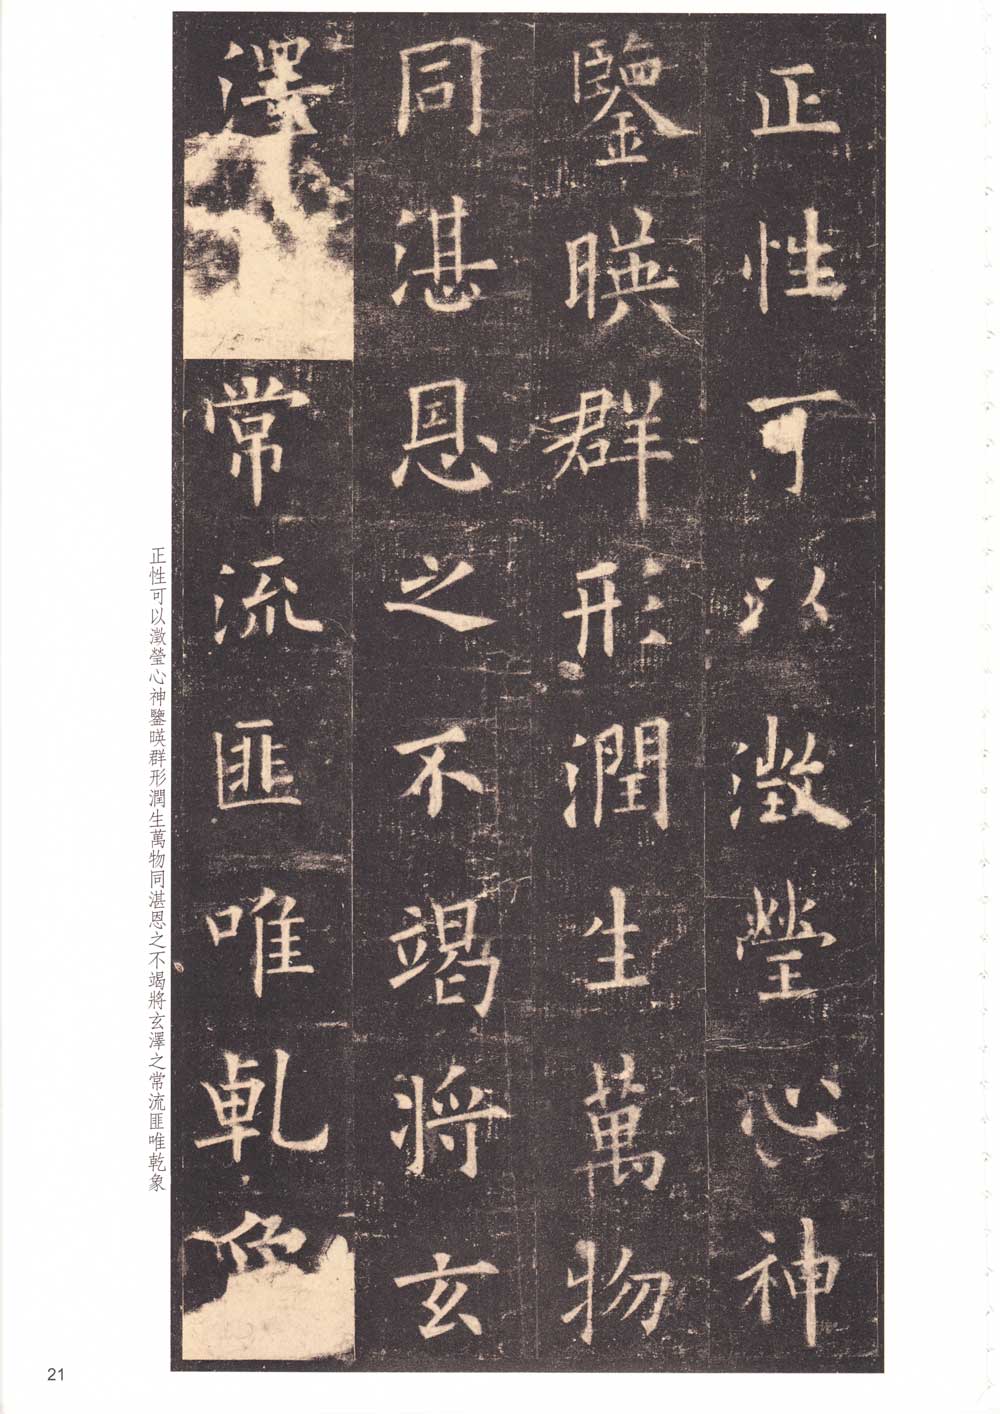 正性可以澂瑩心神
鑒暎群形潤生萬物
同湛恩之不竭將玄
澤常流匪唯乾象
正性可以澂瑩心神鑒暎群形潤生萬物同湛恩之不竭將玄澤之常流匪唯乾象
21